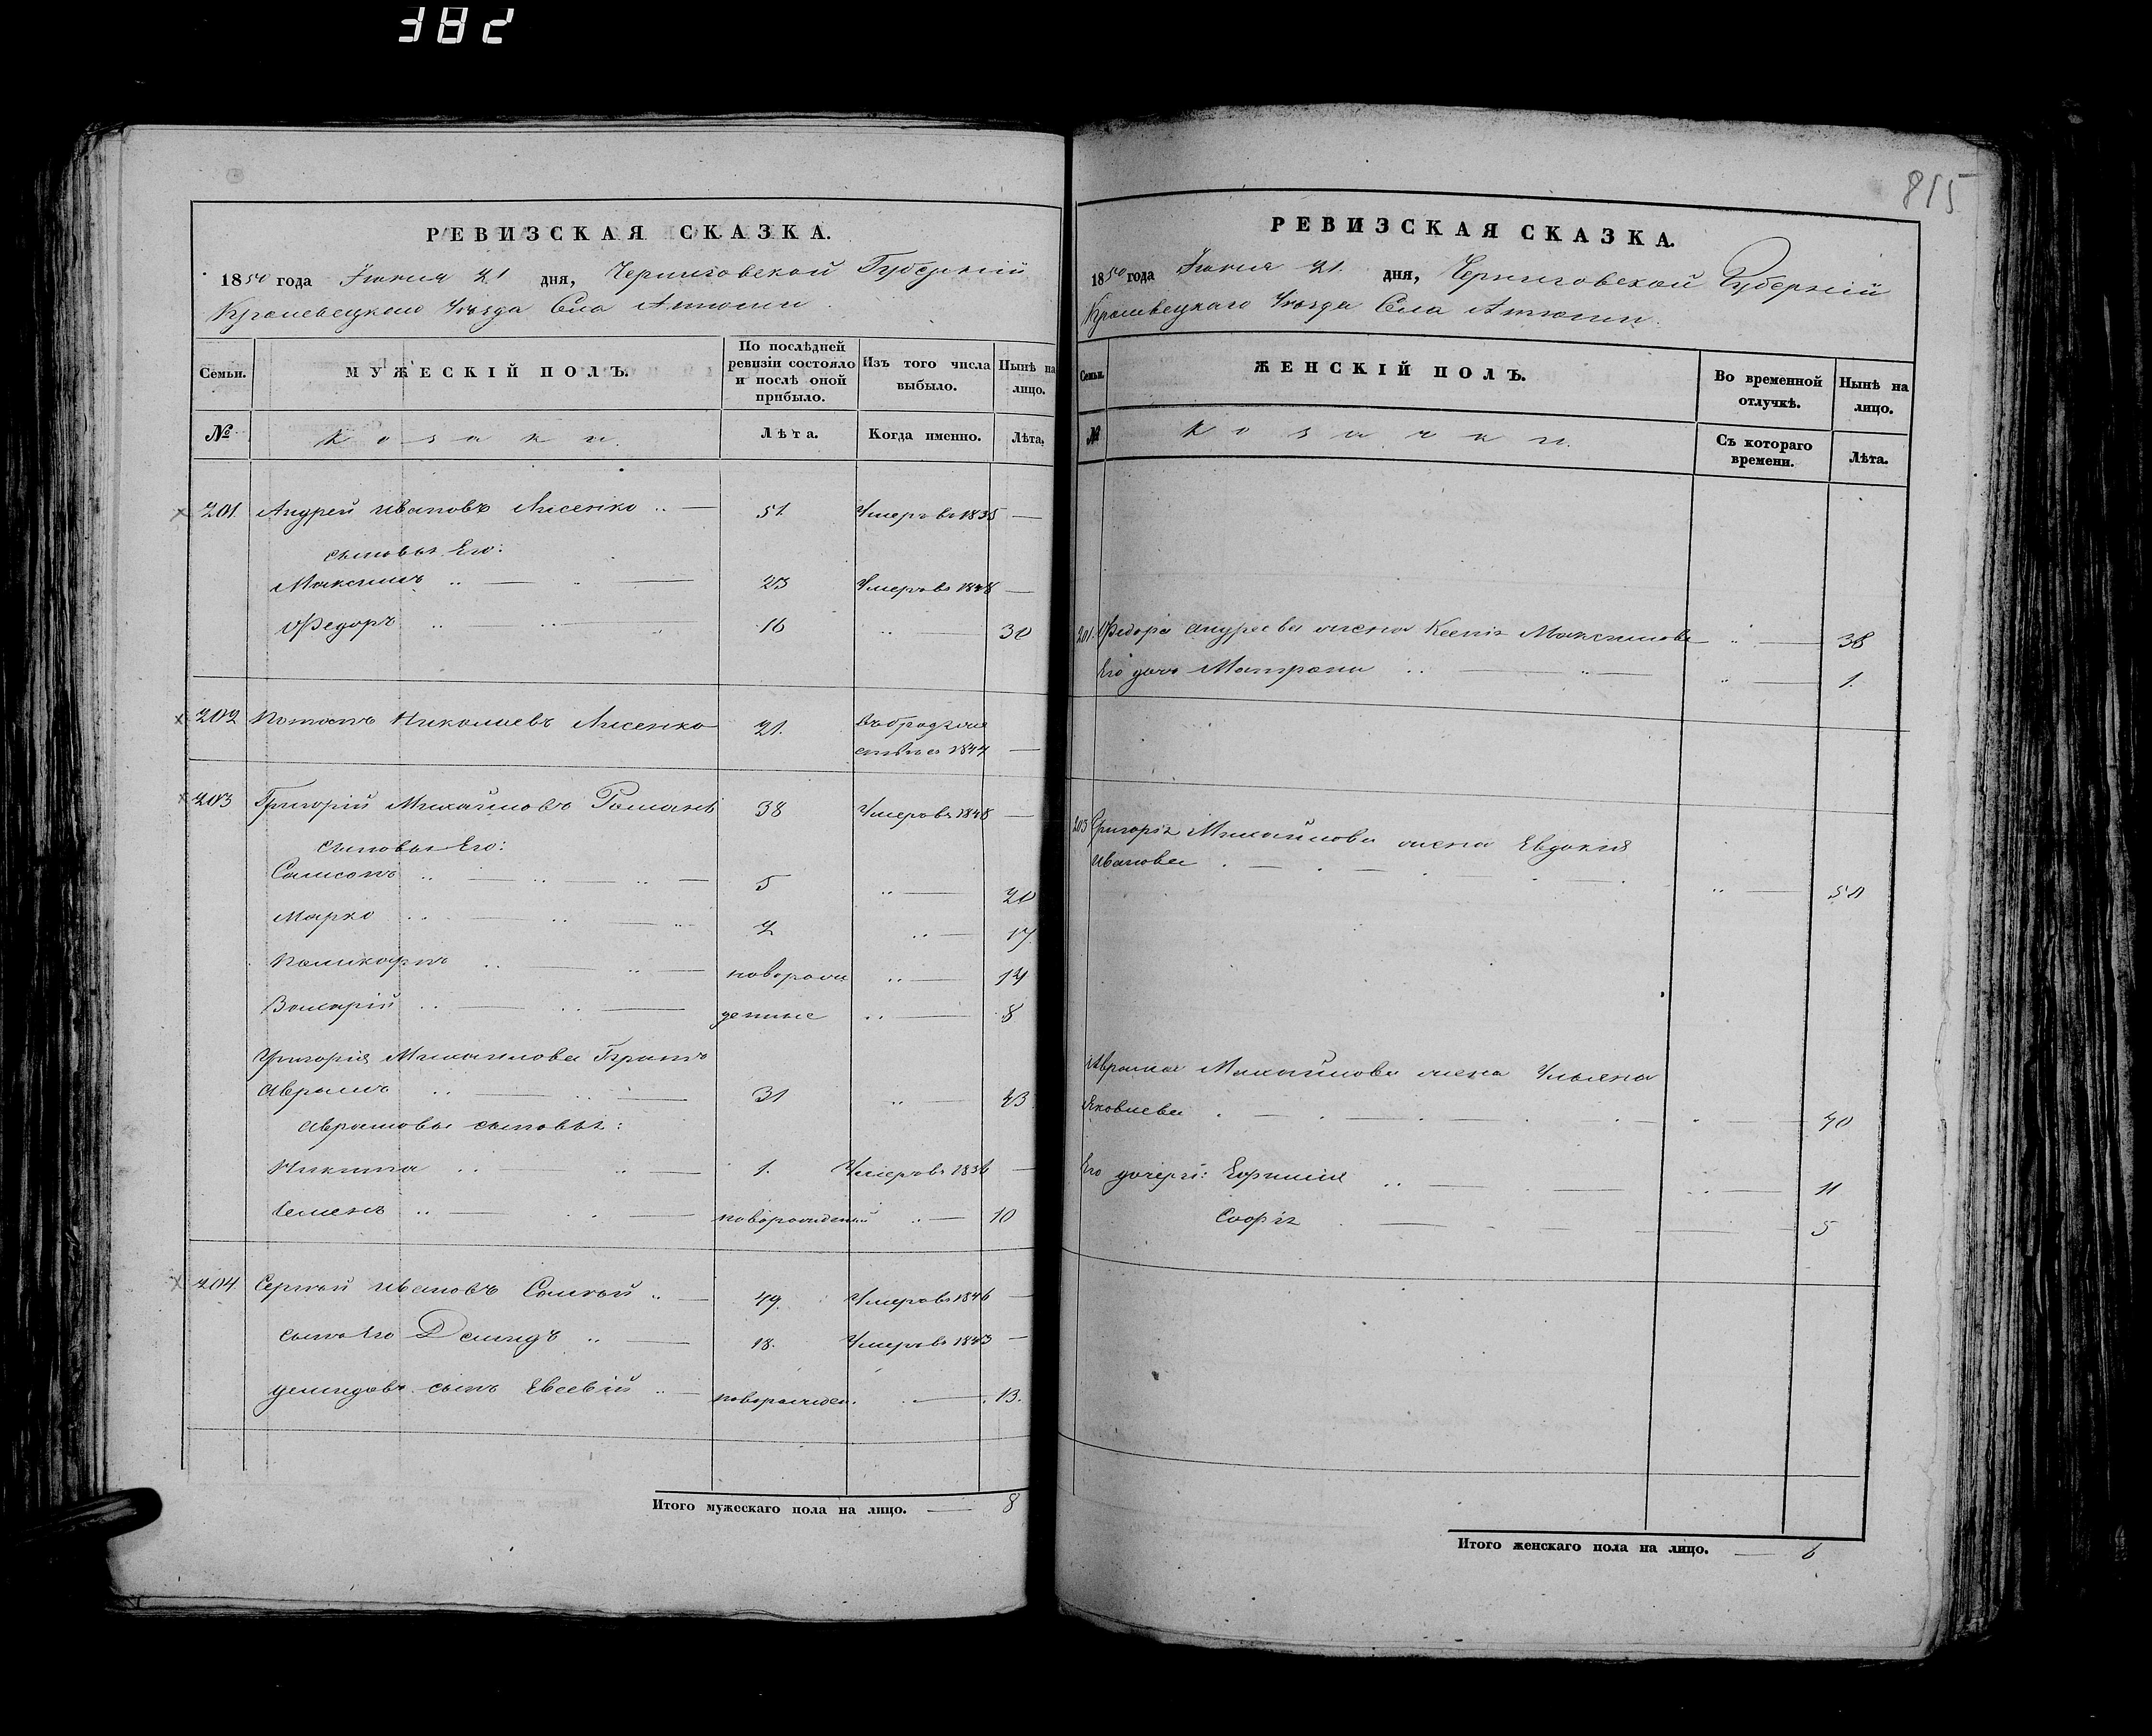 382
РЕВИЗСКАЯ СКАЗКА.
1850 года Іюния 21 дня, Черниговской Губерніи
Кролевецкого Уезда Села
Семьи.
МУЖЕСКІЙ ПОЛЪ.
По послѣдней ревизіи состояло и послѣ оной прибыло.
Изъ того числа выбыло.
Нынѣ на лицо.
№
Козаки.
Лѣта.
Когда именно.
Лѣта.
201. Андрей Ивановъ Лисенко 51. Умеръ въ 1835
сыновья Его:
Максимъ 23 Умеръ въ 1848
Федоръ 16 30
202 Потапъ Николаевъ Лисенко 21.
1844
203 Григорій Михайловъ 38 Умеръ въ 1848
сыновья Его:
Самсонъ 5 20
Марко 2 17.
Поликарпъ новорож 14
Валерій денные 8
Григорія Михайлова Братъ
Аврамъ 31 43
Аврамовы сыновья:
Никита 1. Умеръ въ 1836
Семенъ новорожденный 10
204. Сергей Ивановъ 49. Умеръ въ 1846
сынъ Его Демидъ 18. Умеръ въ 1843
Демидовъ сынъ Евсевій новорожден. 13.
Итого мужескаго пола на лицо. 8
815
РЕВИЗСКАЯ СКАЗКА.
1850 года Іюния 21. дня, Черниговской Губерніи
Кролевецкаго Уезда Села
Семьи.
ЖЕНСКІЙ ПОЛЪ.
Во временной отлучкѣ.
Нынѣ на лицо.
№
Козачки.
Съ котораго времени.
Лѣта.
201. Федора Андреева жена Ксенія Максимова 38
Его дочь Матрона 1.
203 Григорія Михайлова жена Евдокия
Иванова 50
Аврама Михайлова жена Ульяна
Яковлева 40
Его дочери: Ефимия 11
Софія 5
Итого женскаго пола на лицо. 6